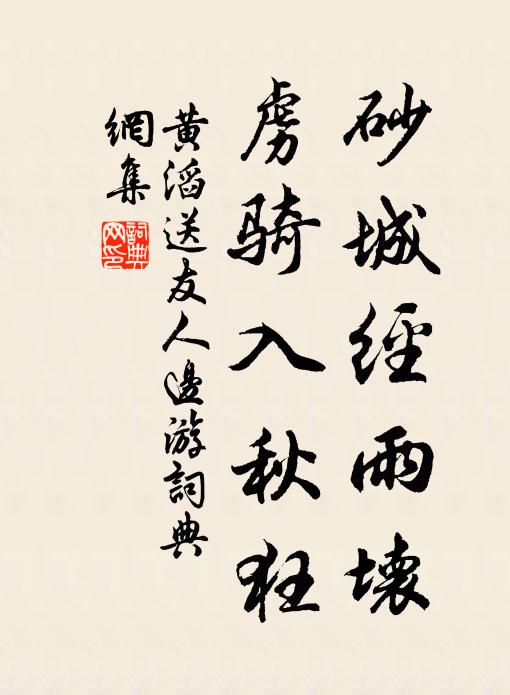 砂城經雨壞
虜騎入秋狂
黄滔送友人邊游詞典
網集
詞典
网印